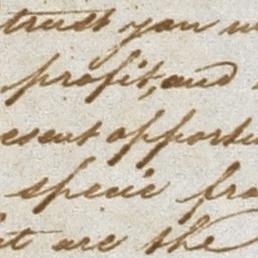 trust you w
profit, and
esent opportu
specie fro
at are the